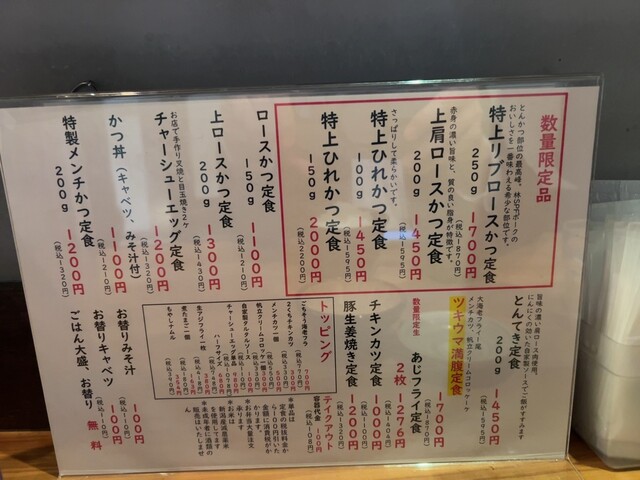 数量限定品
とんかつ部位の最高峰。林SPFポークの
おいしさを一番味わえる希少な部位です。
特上リブロースかつ定食
250g
1700円
(税込1870円)
赤身の濃い旨味と、質の良い脂身が特徴です。
上肩ロースかつ定食
200g
1450円
(税込1595円)
さっぱりして柔らかいです。
特上ひれかつ定食
100g
1450円
(税込1595円)
特上ひれかつ定食
150g
2000円
(税込2200円)
ロースかつ定食
150g
1100円
(税込1210円)
上ロースかつ定食
200g
1300円
(税込1430円)
お店で手作り叉焼と目玉焼き2ケ
チャーシューエッグ定食
1200円
(税込1320円)
かつ丼(キャベツ、みそ汁付)
1100円
(税込1210円)
特製メンチかつ定食
200g
1200円
(税込1320円)
旨味の濃い肩ロース肉使用。
にんにくの効いた自家製ソースでご飯がすすみます
とんてき定食
200g
1450円
(税込1595円)
大海老フライ一尾
メンチカツ、帆立クリームコロッケ一ケ
ツギウマ満腹定食
1700円
(税込1870円)
数量限定生
あじフライ定食
2枚
1276円
(税込1404円)
チキンカツ定食
1000円
豚生姜焼き定食
1200円
(税込1320円)
トッピング
ごちそう海老フライ
700円
(税込770円)
2くちチキンカツ
メンチカツ一個
帆立クリームコロッケ一個
自家製タルタルソース
チャーシューエッグ単品
ハーフサイズ
生アジフライ一枚
煮たまご一個
もやしナムル
テイクアウト
容器代金
100円
(税込108円)
お替りみそ汁
100円
(税込110円)
お替りキャベツ
100円
(税込110円)
ごはん大盛、お替り
無料